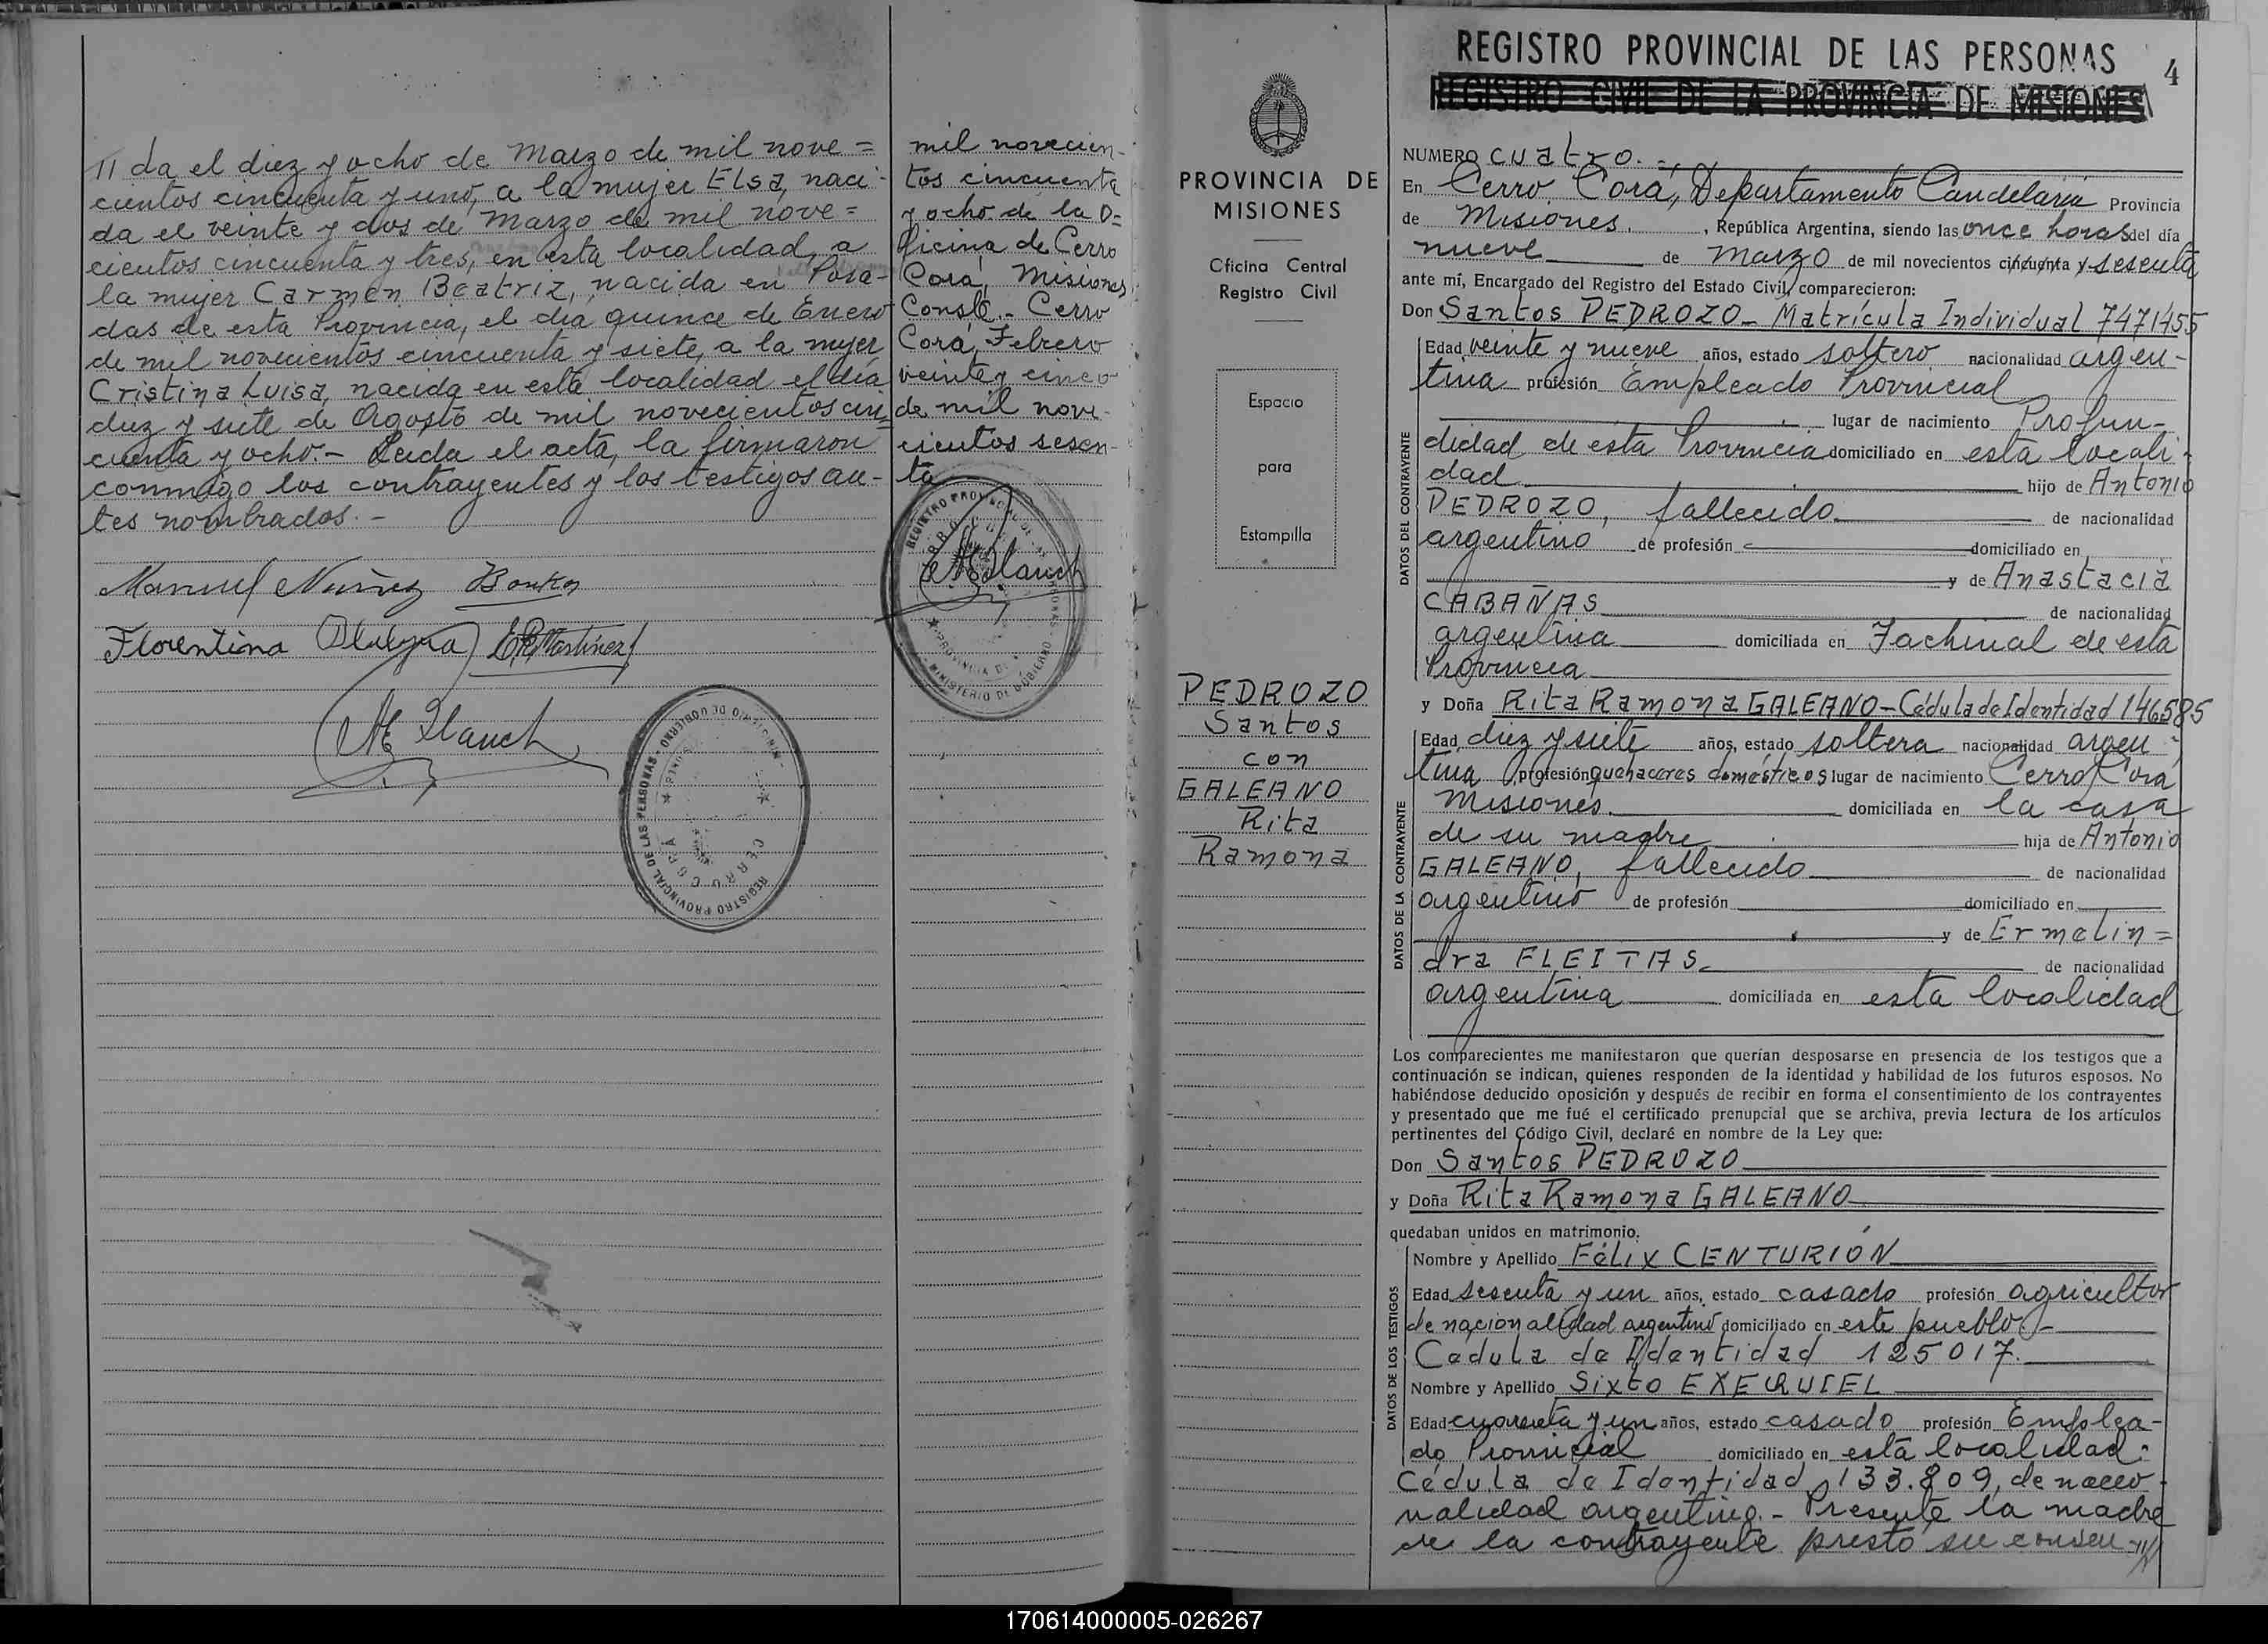 // da el diez y ocho de Marzo de mil nove=
cientos cincuenta y uno, a la mujer Elsa, naci-
da el veinte y dos de Marzo de mil nove=
cientos cincuenta y tres, en esta localidad, a
la mujer Carmen Beatriz, nacida en Posa-
das de esta Provincia, el día quince de Enero
de mil novecientos cincuenta y siete, a la mujer
Cristina Luisa, nacida en esta localidad el día
diez y siete de Agosto de mil novecientos cin
cuenta y ocho.- Leida el acta, la firmaron
conmigo los contrayentes y los testigos an-
tes nombrados.-
Manuel Nuñez
Florentina E.R. Martinez
M Llanch
mil novecien-
tos cincuenta
y ocho de la O=
ficina de Cerro
Corá, Misiones
Conste.- Cerro
Corá, Febrero
veinte y cinco
de mil nove-
cientos sesen-
ta
M Llanch
REGISTRO PROVINCIAL DE LAS PERSONAS
MINISTERIO DE GOBIERNO
CERRO CORA
PROVINCIA DE
MISIONES
Oficina Central
Registro Civil
Espacio
para
Estampilla
PEDROZO
Santos
con
GALEANO
Rita
Ramona
REGISTRO PROVINCIAL DE LAS PERSONAS
4
REGISTRO CIVIL DE LA PROVINCIA DE MISIONES
NUMERO cuatro.-
En Cerro Corá, Departamento Candelaria Provincia
de Misiones, República Argentina, siendo las once horas del día
nueve de Marzo de mil novecientos cincuenta y sesenta
ante mí, Encargado del Registro del Estado Civil, comparecieron:
Don Santos PEDROZO - Matrícula Individual 7471455
DATOS DEL CONTRAYENTE
Edad veinte y nueve años, estado soltero nacionalidad argen-
tina profesión Empleado Provincial
lugar de nacimiento Profun-
didad de esta Provincia domiciliado en esta locali-
dad hijo de Antonio
PEDROZO, fallecido de nacionalidad
argentino de profesión domiciliado en
y de Anastacia
CABAÑAS de nacionalidad
argentina domiciliada en Fachinal de esta
Provincia
y Doña Rita Ramona GALEANO - Cédula de Identidad 146585
DATOS DE LA CONTRAYENTE
Edad diez y siete años, estado soltera nacionalidad argen-
tina profesión quehaceres domésticos lugar de nacimiento Cerro Corá
Misiones domiciliada en la casa
de su madre hija de Antonio
GALEANO, fallecido de nacionalidad
argentino de profesión domiciliado en
y de Ermelin=
dra FLEITAS de nacionalidad
argentina domiciliada en esta localidad
Los comparecientes me manifestaron que querían desposarse en presencia de los testigos que a
continuación se indican, quienes responden de la identidad y habilidad de los futuros esposos. No
habiéndose deducido oposición y después de recibir en forma el consentimiento de los contrayentes
y presentado que me fué el certificado prenupcial que se archiva, previa lectura de los artículos
pertinentes del Código Civil, declaré en nombre de la Ley que:
Don Santos PEDROZO
y Doña Rita Ramona GALEANO
quedaban unidos en matrimonio.
DATOS DE LOS TESTIGOS
Nombre y Apellido Félix CENTURIÓN
Edad sesenta y un años, estado casado profesión agricultor
de nacionalidad argentino domiciliado en este pueblo.-
Cédula de Identidad 125017.
Nombre y Apellido Sixto EXEQUIEL
Edad cuarenta y un años, estado casado profesión Emplea-
do Provincial domiciliado en esta localidad.
Cédula de Identidad 133.809, de nacio-
nalidad argentino.- Presente la madre
de la contrayente prestó su consen-//
170614000005-026267